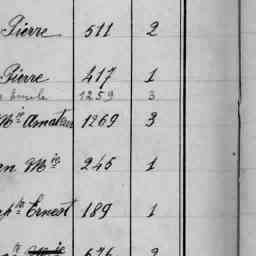 Pierre 511 2
Pierre 417 1
1259 3
Mie Amateur 1269 3
en Mie 245 1
ph Ernest 189 1